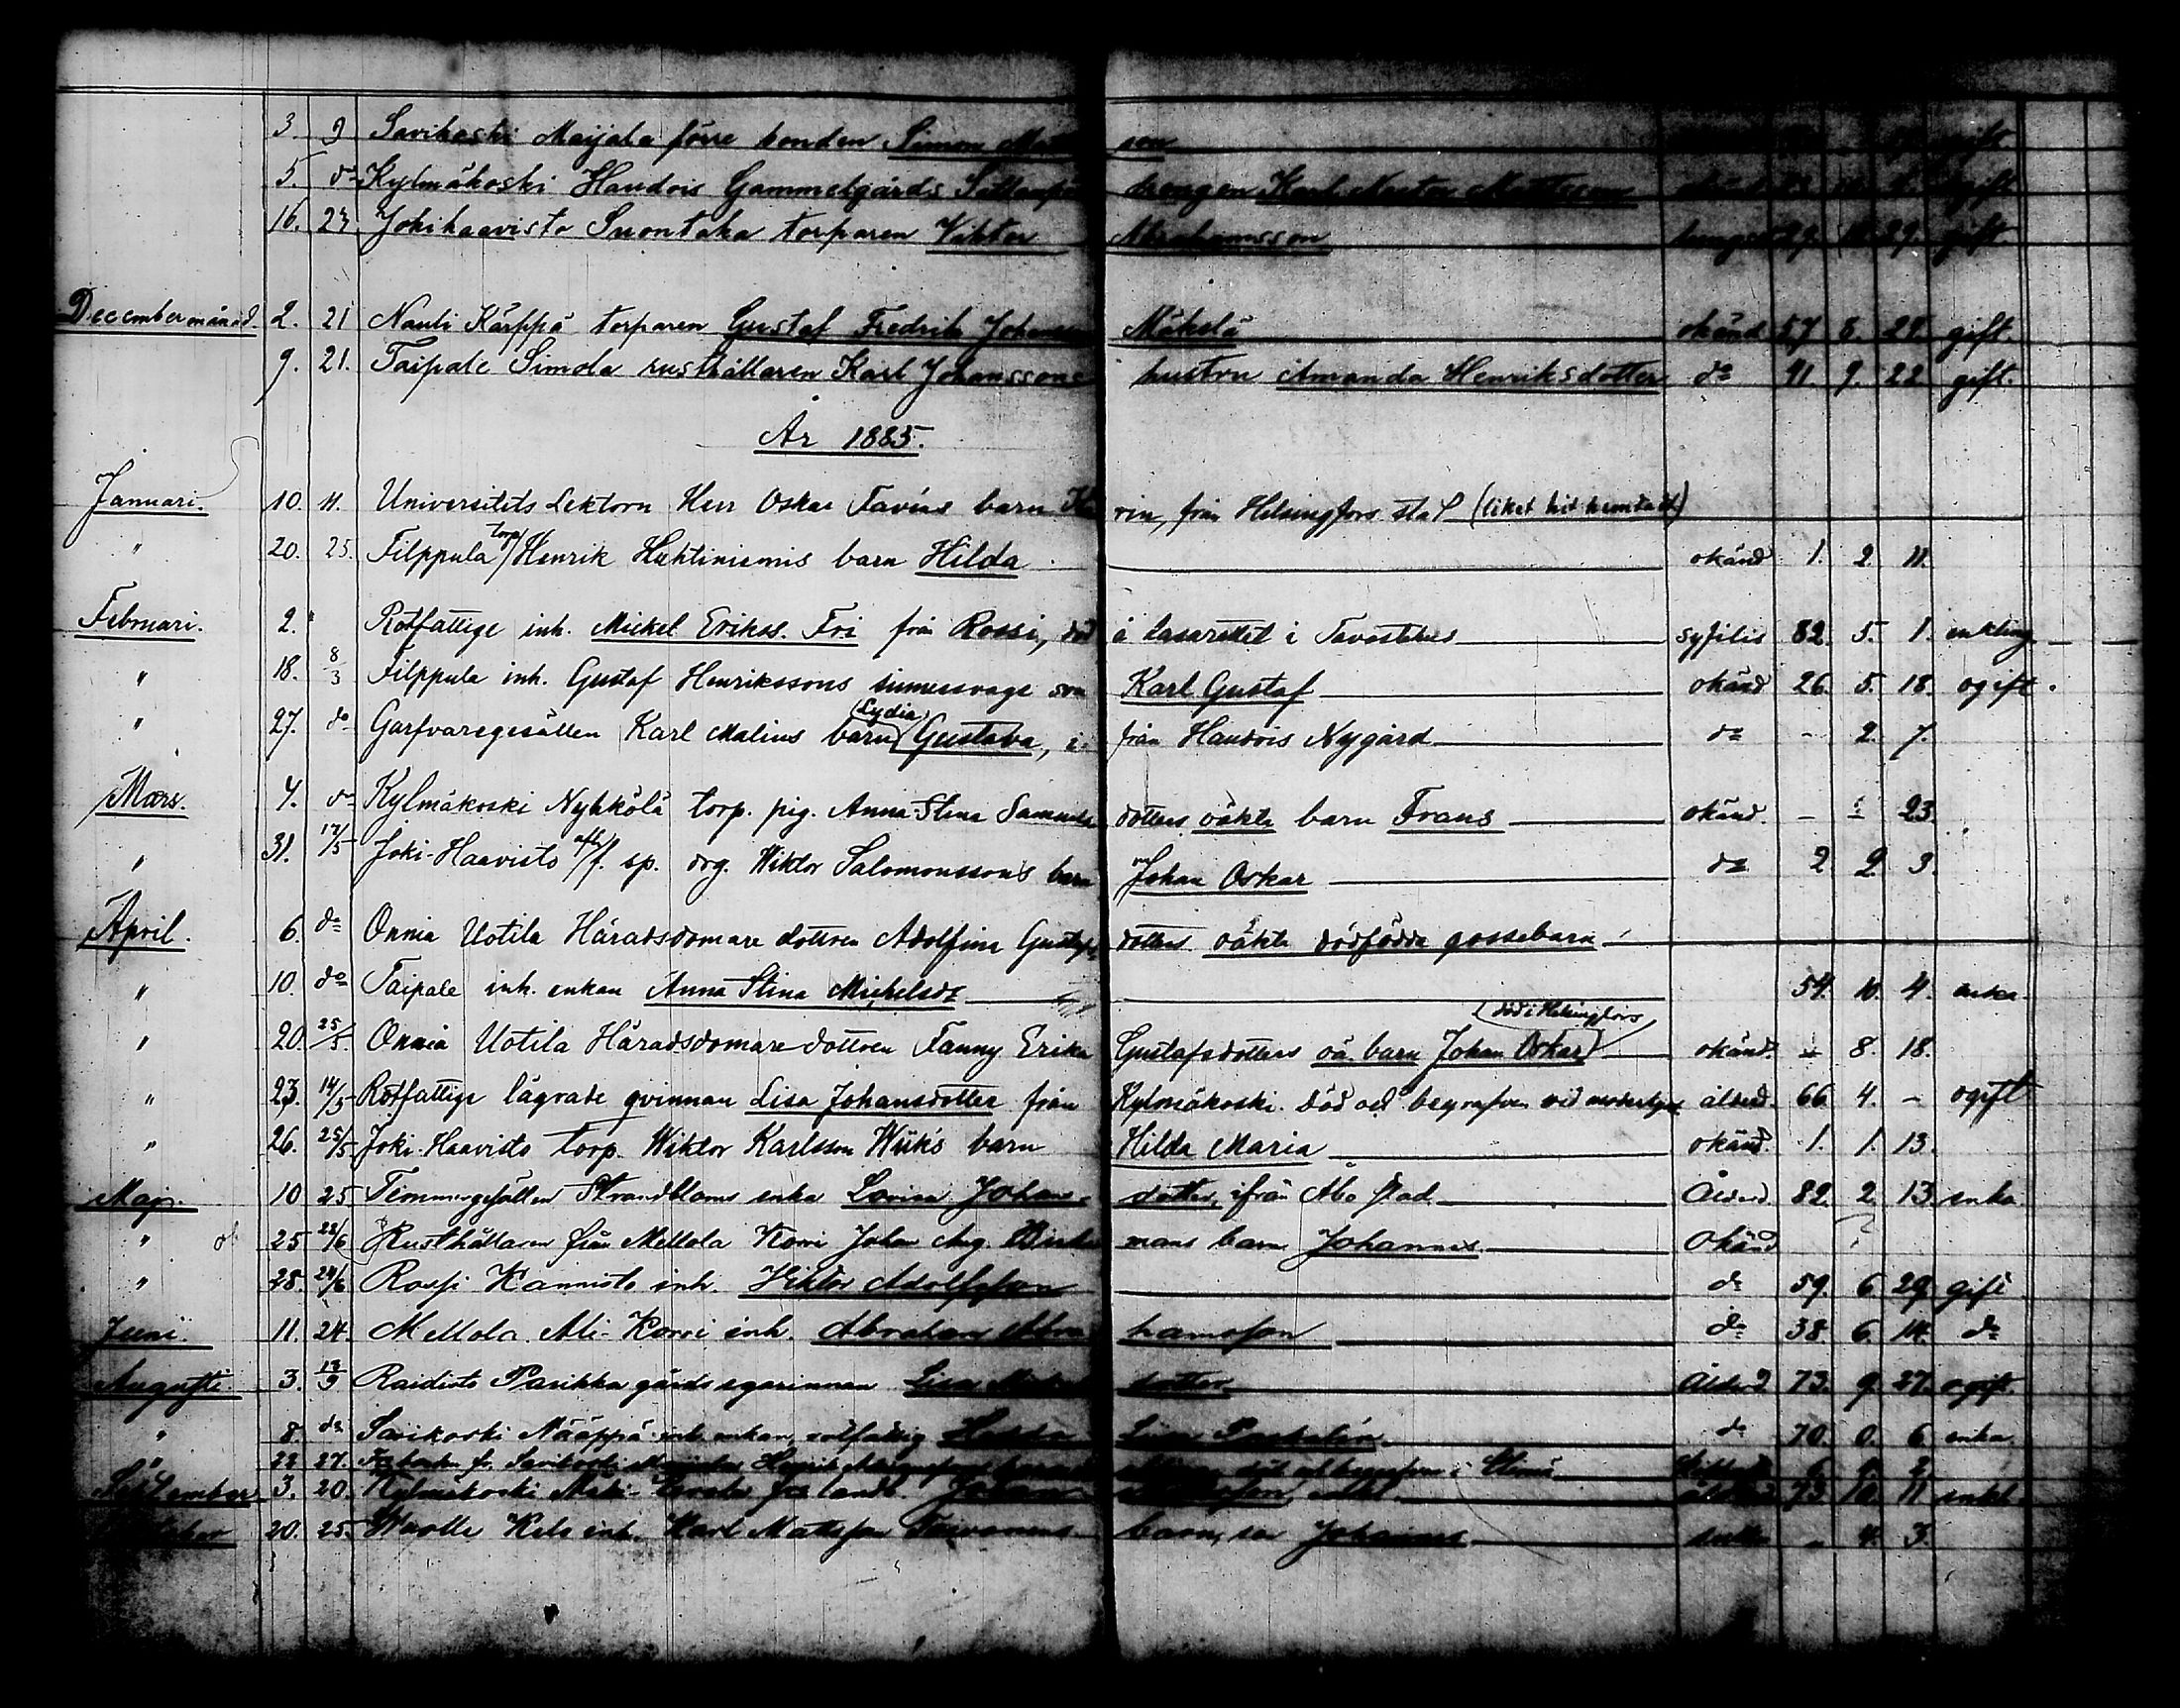 3. 9 Savikoski Maijala förre bonden Simon son gift
5. do Kylmäkoski Haudois Gammelgårds drengen Karl Nestor Mattsson
16. 23 Jokihaavisto Suontaka torparen Viktor Abrahamsson 29. gift
December månad. 2. 21 Nauli Kärppä torparen Gustaf Fredrik Johansson Mäkelä okänd 57 8. 28. gift.
9. 21. Taipale Simola rusthållaren Karl Johanssons hustru Amanda Henriksdotter do 41. 9. 22 gift.
År 1885.
Januari. 10. 11. Universitets Lektorn Herr Oskar barn Karin, från Helsingfors stad (liket hit hemtadt)
" 20. 25. Filppula torp. Henrik Huhtiniemis barn Hilda okänd 1. 2 11.
Februari. 2. Rotfattige inh. Mickel Erikss. Fri från Rossi, död å lasarettet i Tavastehus syfilis 82. 5. 1. enkling
" 18. 8/3 Filppula inh. Gustaf Henrikssons sinnessvage son Karl Gustaf okänd 26. 5. 18. ogift.
" 27. do Garfvaregesällen Karl Malins barn (Lydia) Gustava, från Haudois Nygård do - 2. 7.
Mars. 4. do Kylmäkoski Nyhkölä torp. pig. Anna Stina Samuelsdotters oäkta barn Frans okänd. - - 23.
" 31. 17/5 Joki-Haavisto afl. f. sp. drg. Wiktor Salomonssons barn Johan Oskar do 2 2 3.
April. 6. do Onnia Uotila Häradsdomare dottren Adolfina Gustafsdotters oäkta dödfödda gossebarn
" 10. do Taipale inh. enkan Anna Stina Michelsdr 54. 10. 4. enka
" 20. 25/5. Onnia Uotila Häradsdomare dottren Fanny Erika Gustafsdotters oä. barn Johan Oskar (död i Helsingfors) okänd. - 8. 18.
" 23. 14/5 Rotfattige lägrade qvinnan Lisa Johansdotter från Kylmäkoski. Död och begrafven vid moderkyrk ålderd. 66 4. - ogift
" 26. 25/5 Joki-Haavisto torp. Wiktor Karlsson Wiiks barn Hilda Maria okänd. 1. 1. 13.
Maj. 10 25 Timmergesällen Strandbloms enka Lovisa Johansdotter, ifrån Åbo stad Ålderd. 82. 2 13 enka
" 25 22/6 Rusthållaren från Mellola Korvi Johan Aug. barn Johannes Okänd ?
" 28. 24/6 Rossi Kannisto inh. Viktor Adolfsson do 59. 6 29 gift
Juni. 11. 24. Mellola Ali-Korvi inh. Abraham Abrahamsson do 38. 6. 14. do
Augusti. 3. 13/9 Raidisto Parikka gårdsegarinnan Lisa dotter Ålderd 73. 9. 27. ogift.
" 8. do Savikoski Nääppä inh. enkan, rotfattig Lisa do 70. 0. 6. enka.
" 22 27. Savikoski Henrik
September 3. 20. Kylmäkoski Johan 73 10 11 enkl.
20. 25. inh. Karl Matsson Toivonens barn, son Johannes - 4. 3.